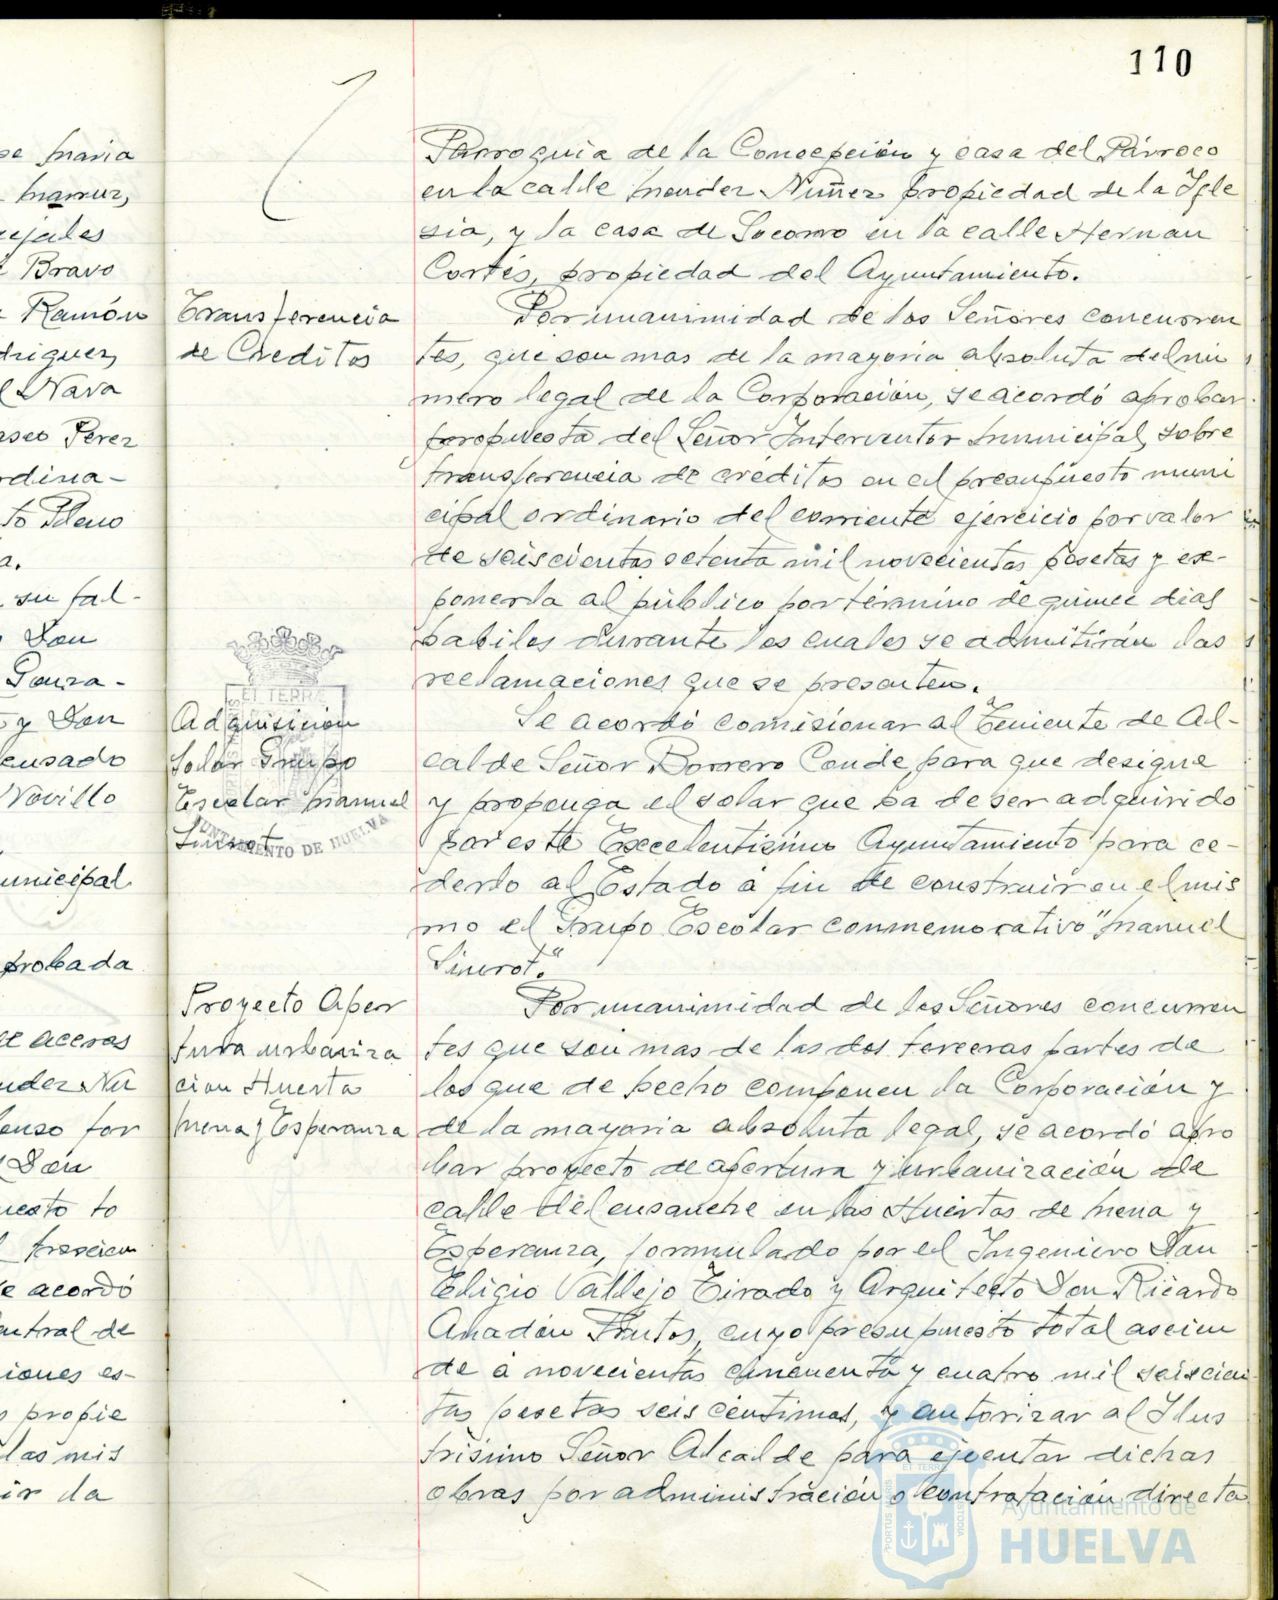 110
Parroquia de la Concepción y casa del Párroco
en la calle Mendez Nuñez propiedad de la Igle
sia, y la casa de Socorro en la calle Hernan
Cortés, propiedad del Ayuntamiento.
Transferencia
de Creditos
Por unanimidad de los Señores concurren
tes, que son mas de la mayoria absoluta del nú
mero legal de la Corporación, se acordó aprobar
propuesta del Señor Interventor Municipal, sobre
transferencia de créditos en el presupuesto muni
cipal ordinario del corriente ejercicio por valor
de seiscientas setenta mil novecientas pesetas y ex-
ponerla al público por término de quince dias
habiles durante los cuales se admitirán las
reclamaciones que se presenten.
Adquisicion
Solar Grupo
Escolar Manuel
Siurot
Se acordó comisionar al Teniente de Al-
calde Señor Borrero Conde, para que designe
y proponga el solar que ha de ser adquirido
por este Excelentisimo Ayuntamiento para ce-
derlo al Estado á fin de construir en el mis
mo el Grupo Escolar conmemorativo "Manuel
Siurot."
Proyecto Aper
tura urbaniza
cion Huerta
Mena y Esperanza
Por unanimidad de los Señores concurren
tes que son mas de las dos terceras partes de
los que de hecho componen la Corporación y
de la mayoria absoluta legal, se acordó apro
bar proyecto de apertura y urbanización de
calle del ensanche en las Huertas de Mena y
Esperanza, formulado por el Ingeniero Don
Eligio Vallejo Tirado y Arquitecto Don Ricardo
Anadón Frutos, cuyo presupuesto total ascien
de á novecientas cincuenta y cuatro mil seiscien
tas pesetas seis céntimos, y autorizar al Ilus
trisimo Señor Alcalde para ejecutar dichas
obras por administración o contratación directa
se Maria
Bravo
Ramón
driguez,
Nava
Perez
rdina-
to Pleno
su fal-
Don
Gonza-
y Don
ensado
Novillo
unicipal
probada
de aceras
ndez Nu
Don
uesto to
se acordó
entral de
iones es-
propie
las mis
ir la
ET TERRÆ
AYUNTAMIENTO DE HUELVA
Ayuntamiento de
HUELVA